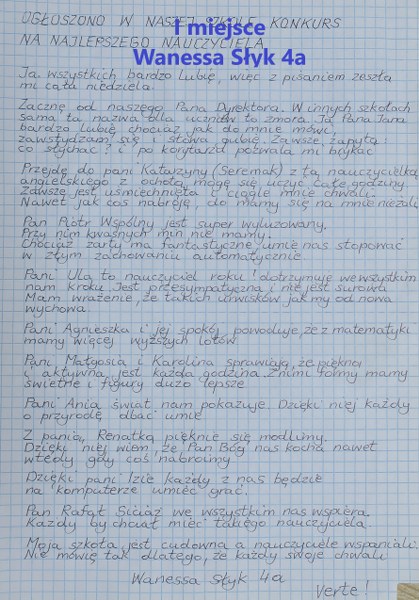 OGŁOSZONO W NASZEJ SZKOLE KONKURS
I miejsce
NA NAJLEPSZEGO NAUCZYCIELA
Wanessa Słyk 4a
Ja wszystkich bardzo lubię, więc z pisaniem zeszła
mi cała niedziela.
Zacznę od naszego Pana Dyrektora. W innych szkołach
sama ta nazwa dla uczniów to zmora. Ja Pana Jana
bardzo lubię chociaż jak do mnie mówi,
zawstydzam się i słowa gubię. Zawsze zapyta:
co słychać? i po korytarzu pozwala mi brykać
Przejdę do pani Katarzyny (Seremak) z tą nauczycielką
angielskiego z ochotą mogę się uczyć całe godziny.
Zawsze jest uśmiechnięta i ciągle mnie chwali.
Nawet jak coś nabroję, do mamy się na mnie nie żali
Pan Piotr Wspólny jest super wyluzowany.
Przy nim kwaśnych min nie mamy.
Chociaż żarty ma fantastyczne, umie nas stopować
w złym zachowaniu automatycznie.
Pani Ula to nauczyciel roku! dotrzymuje we wszystkim
nam kroku. Jest przesympatyczna i nie jest surowa
Mam wrażenie, że takich urwisków jak my od nowa
wychowa.
Pani Agnieszka i jej spokój powoduje, że z matematyki
mamy więcej wyższych lotów
Pani Małgosia i Karolina sprawiają, że piękna
i aktywna jest każda godzina. Z nimi formy mamy
świetne i figury dużo lepsze
Pani Ania świat nam pokazuje. Dzięki niej każdy
o przyrodę dbać umie
Z panią Renatką pięknie się modlimy.
Dzięki niej wiem, że Pan Bóg nas kocha nawet
wtedy gdy coś nabroimy
Dzięki pani Izie każdy z nas będzie
na komputerze umieć grać.
Pan Rafał we wszystkim nas wspiera.
Każdy by chciał mieć takiego nauczyciela
Moja szkoła jest cudowna a nauczyciele wspaniali.
Nie mówię tak dlatego, że każdy swoje chwali
Wanessa Słyk 4a
Verte!